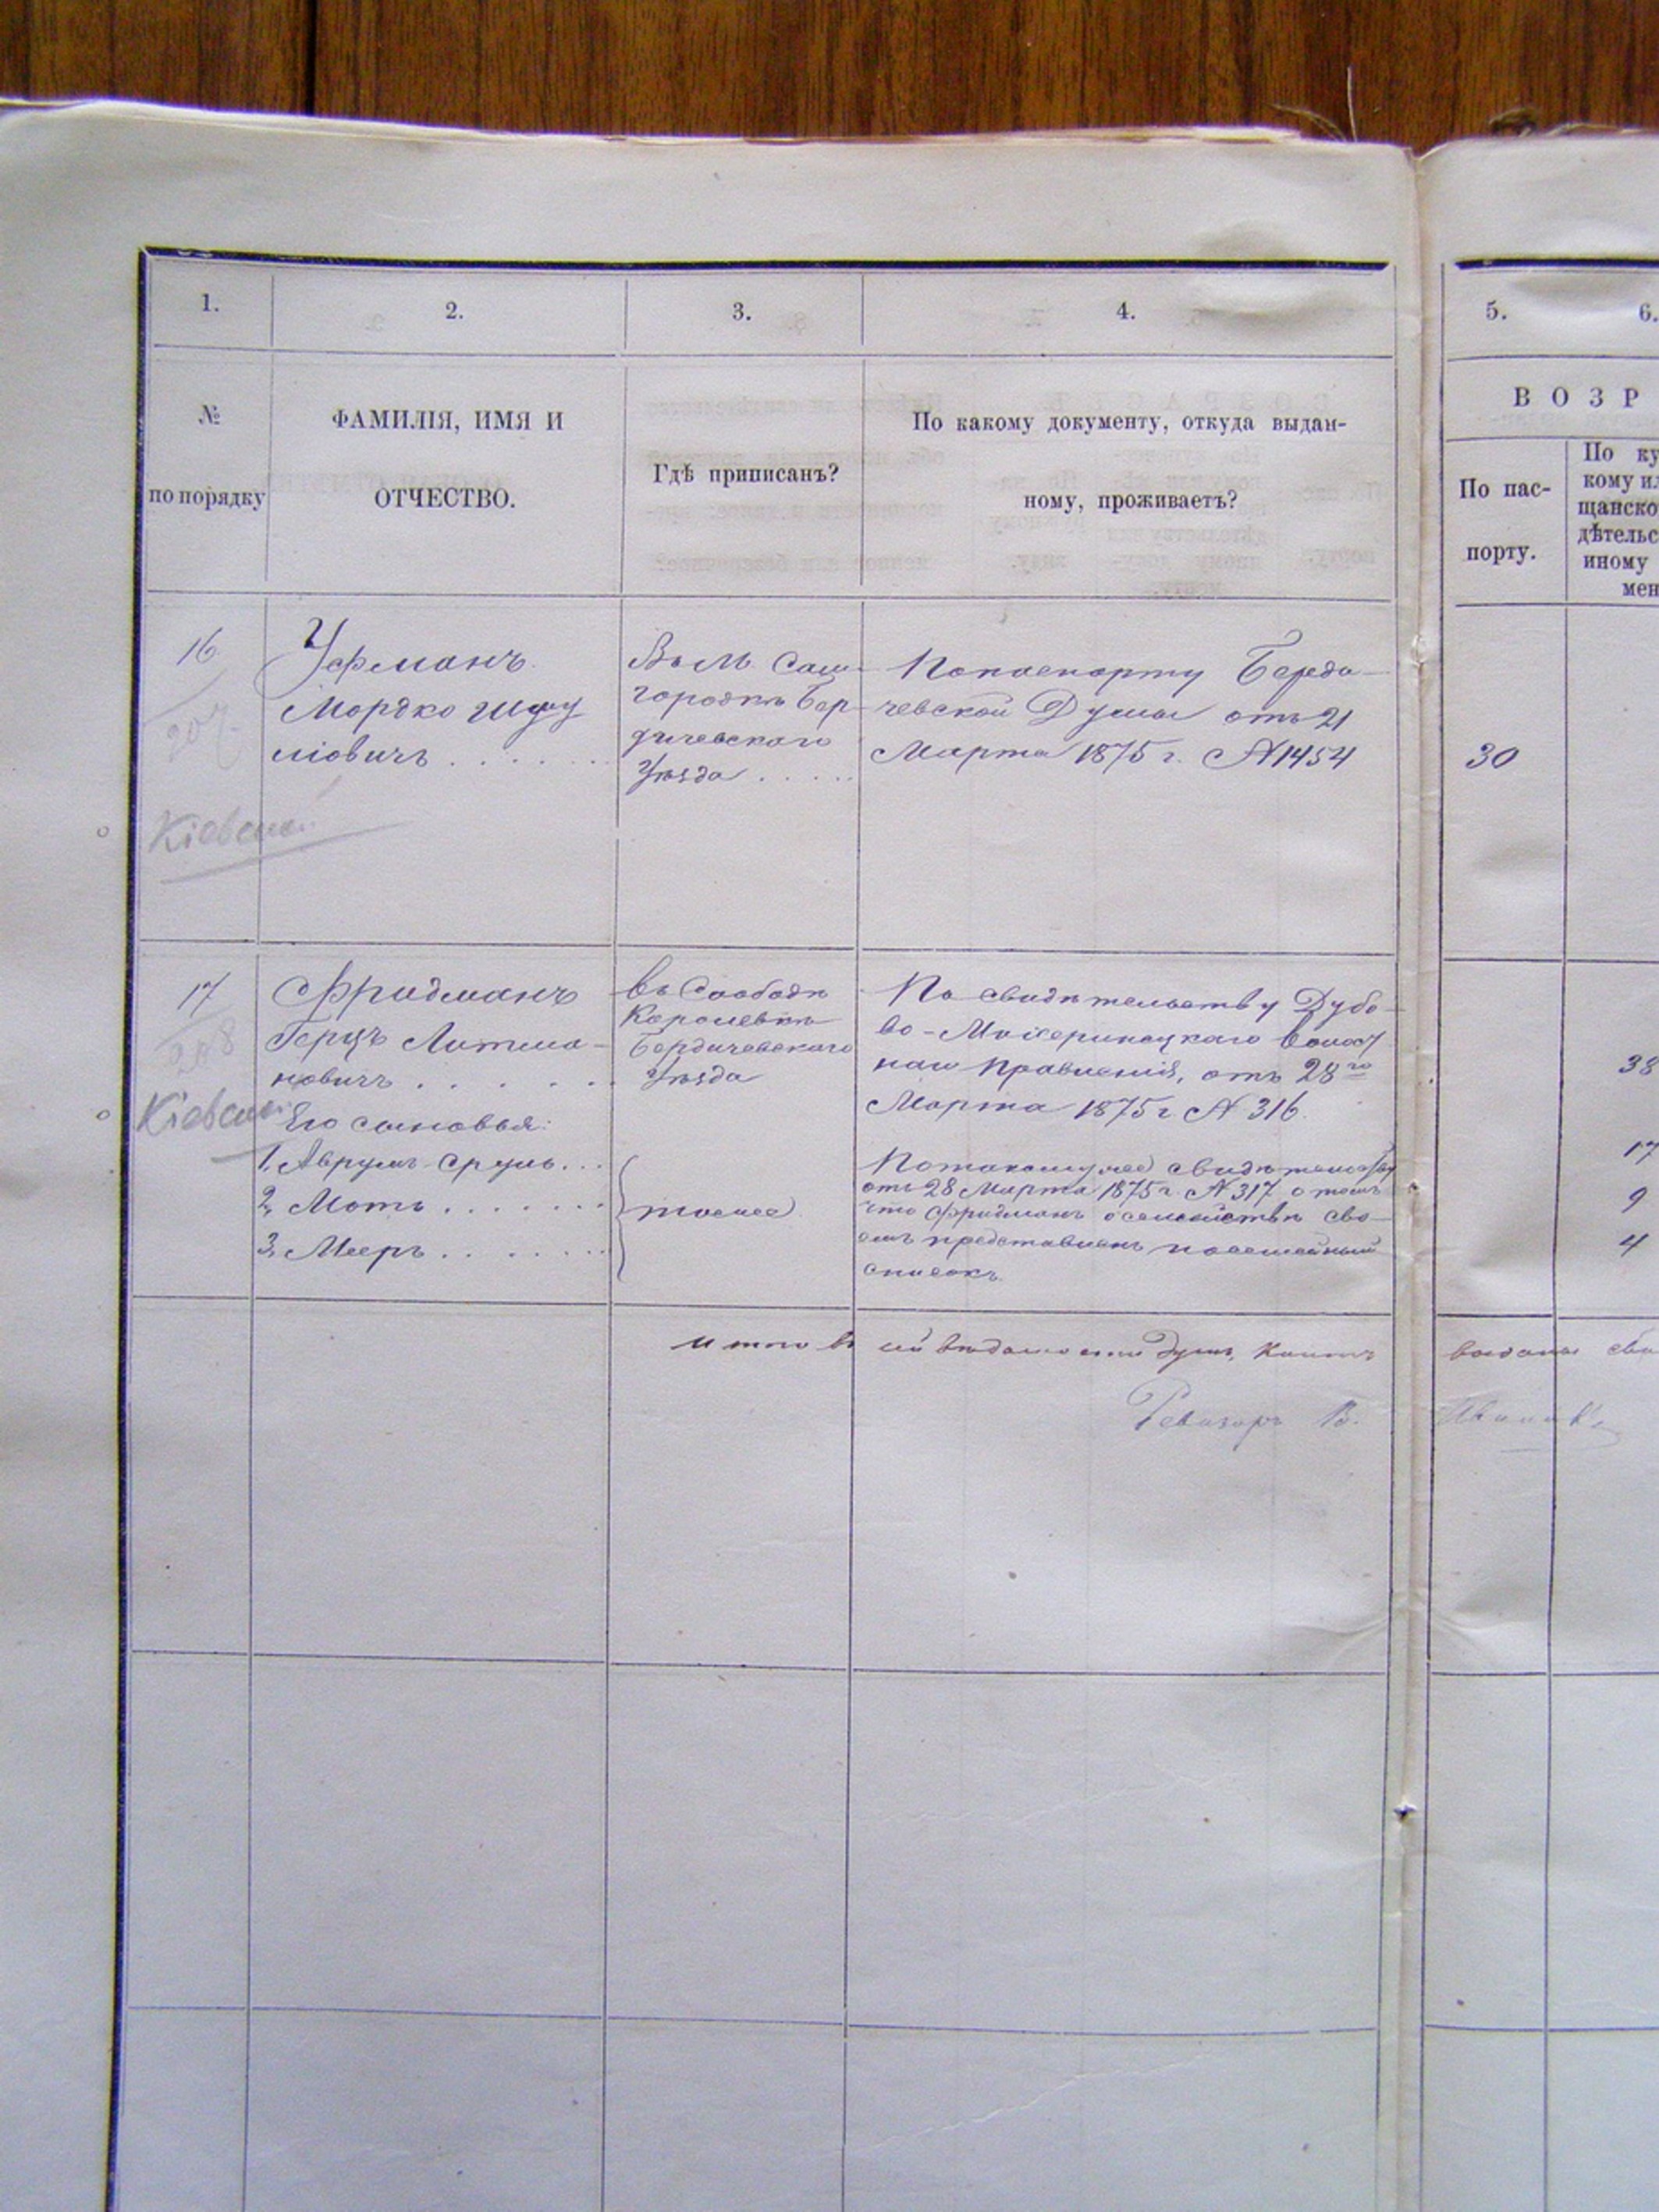 1.
2.
3.
4.
5.
6.
№
по порядку
ФАМИЛІЯ, ИМЯ И
ОТЧЕСТВО.
Гдѣ приписанъ?
По какому документу, откуда выдан-
ному, проживаетъ?
ВОЗР
По пас-
порту.
По ку
кому ил
щанско
дѣтельс
иному
мен
16
207
Уфманъ
Мордко
віовичъ . . . . . . .
Въ м. Сам
городкѣ Бер
дичевскаго
Уѣзда . . . . .
По паспорту Берди-
чевской Думы отъ 21
Марта 1875 г. № 1454
30
Кіевск.
17
208
Фридманъ
Герцъ Литма-
новичъ . . . . . .
Кіевск.
Его сыновья:
1, Аврумъ-Сруль . . .
2, Моть . . . . . . .
3, Мееръ . . . . . . .
въ Слободѣ
Королевкѣ
Бердичевскаго
Уѣзда
тоже
По свидѣтельству Дубо-
во-Махаринецкаго Волост
наго Правленія, отъ 28го
Марта 1875 г № 316.
По такому же свидѣтельству
отъ 28 Марта 1875 г. № 317 о томъ
что Фридманъ о семействѣ сво-
емъ представилъ посемейный
списокъ.
38
17
9
4
Итого въ сей вѣдомости душъ, коимъ выданы
Ревизоръ В.